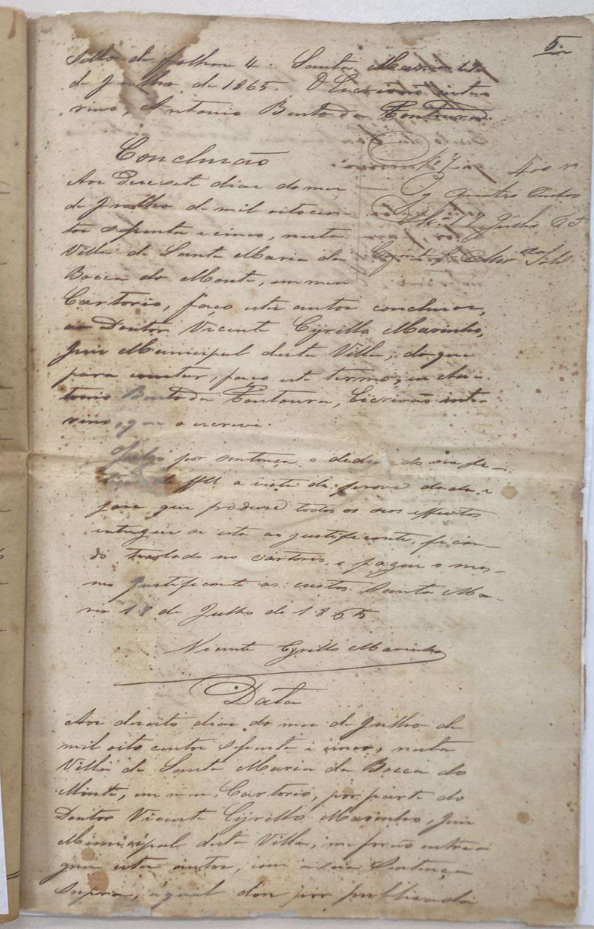 5.
Sello de folhas 4. Santa Maria
de Julho de 1865. O Escrivão inte
rino, Antonio Bento da Fontoura.
Conclusão
Aos desesete dias do mez
de Julho de mil oito cen
tos sessenta e cinco, nesta
Villa de Santa Maria da
Bocca do Monte, em meu
Cartorio, faço estes autos conclusos,
ao Doutor Vicente Cyrillo Marinho,
Juiz Municipal desta Villa; do que
para constar faço este termo; eu An
tonio Bento da Fontoura, Escrivão inte
rino, que o escrevi.
por sentença o dedusido na pe-
a vista da prova dada, e
para que produza todos os seos effeitos
entregue-se esta ao justificante, fican-
do traslado no cartorio, e pague o mes-
mo justificante as custas. Santa Ma-
ria 18 de Julho de 1865
Vicente Cyrillo Marinho
Data
Aos desoito dias do mez de Julho de
mil oito centos sessenta e cinco, nesta
Villa de Santa Maria da Bocca do
Monte, em meu Cartorio, por parte do
Doutor Vicente Cyrillo Marinho, Juiz
Municipal desta Villa, me forão entre
gues estes autos, com a sua Sentença
supra, a qual dou por publicada